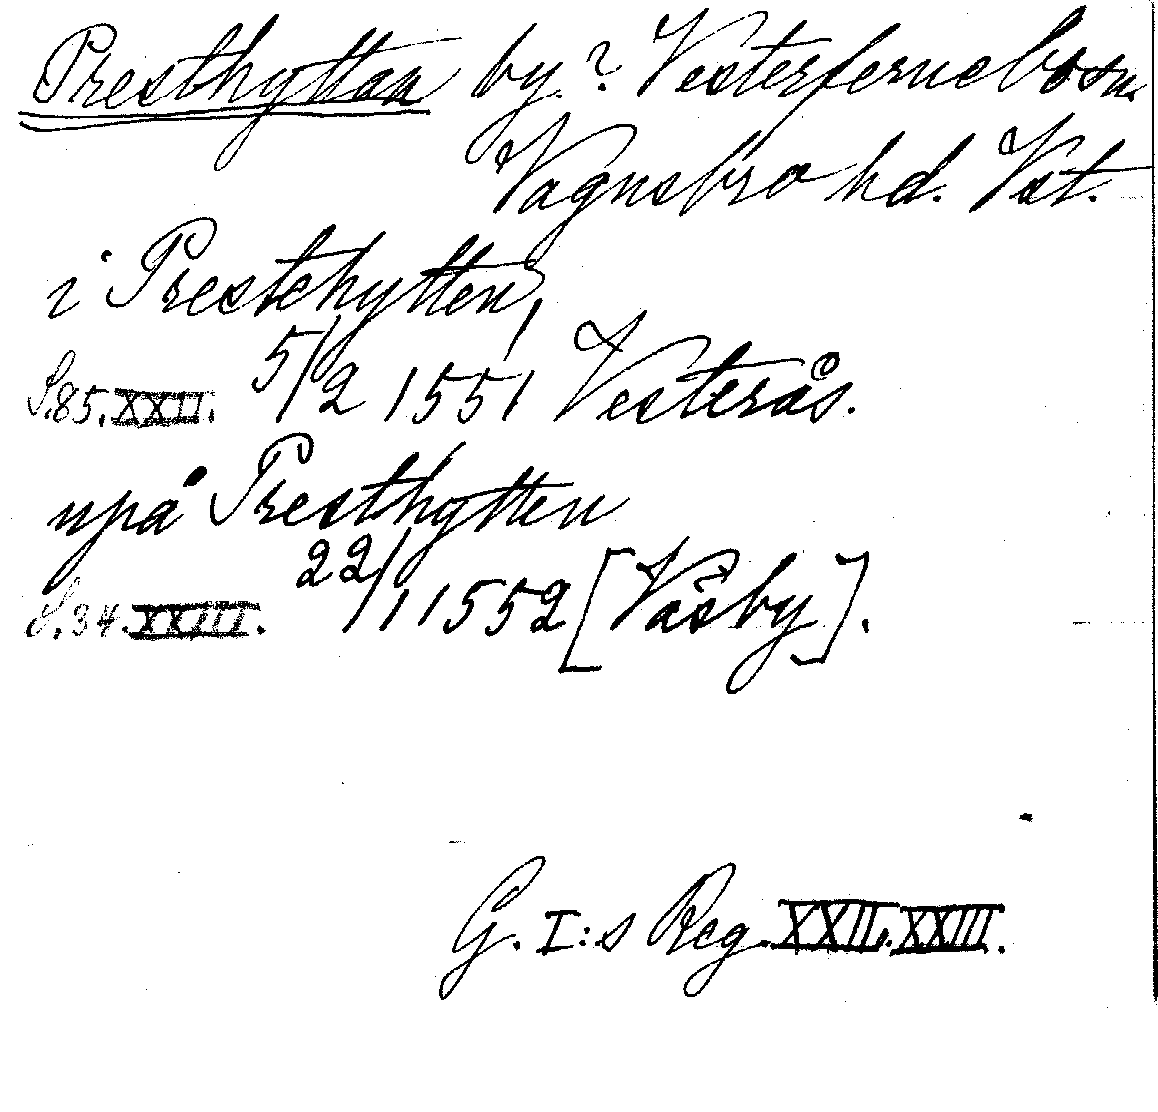 Presthyttan by? Vesterfernebo sn.
Vagnsbro hd. Vst.
i Prestehytten,
S. 85. XXII. 5/2 1551 Vesterås.
upå Presthytten
S. 34. XXIII. 22/1 1552 [Väsby].
G. I:s Reg. XXII. XXIII.